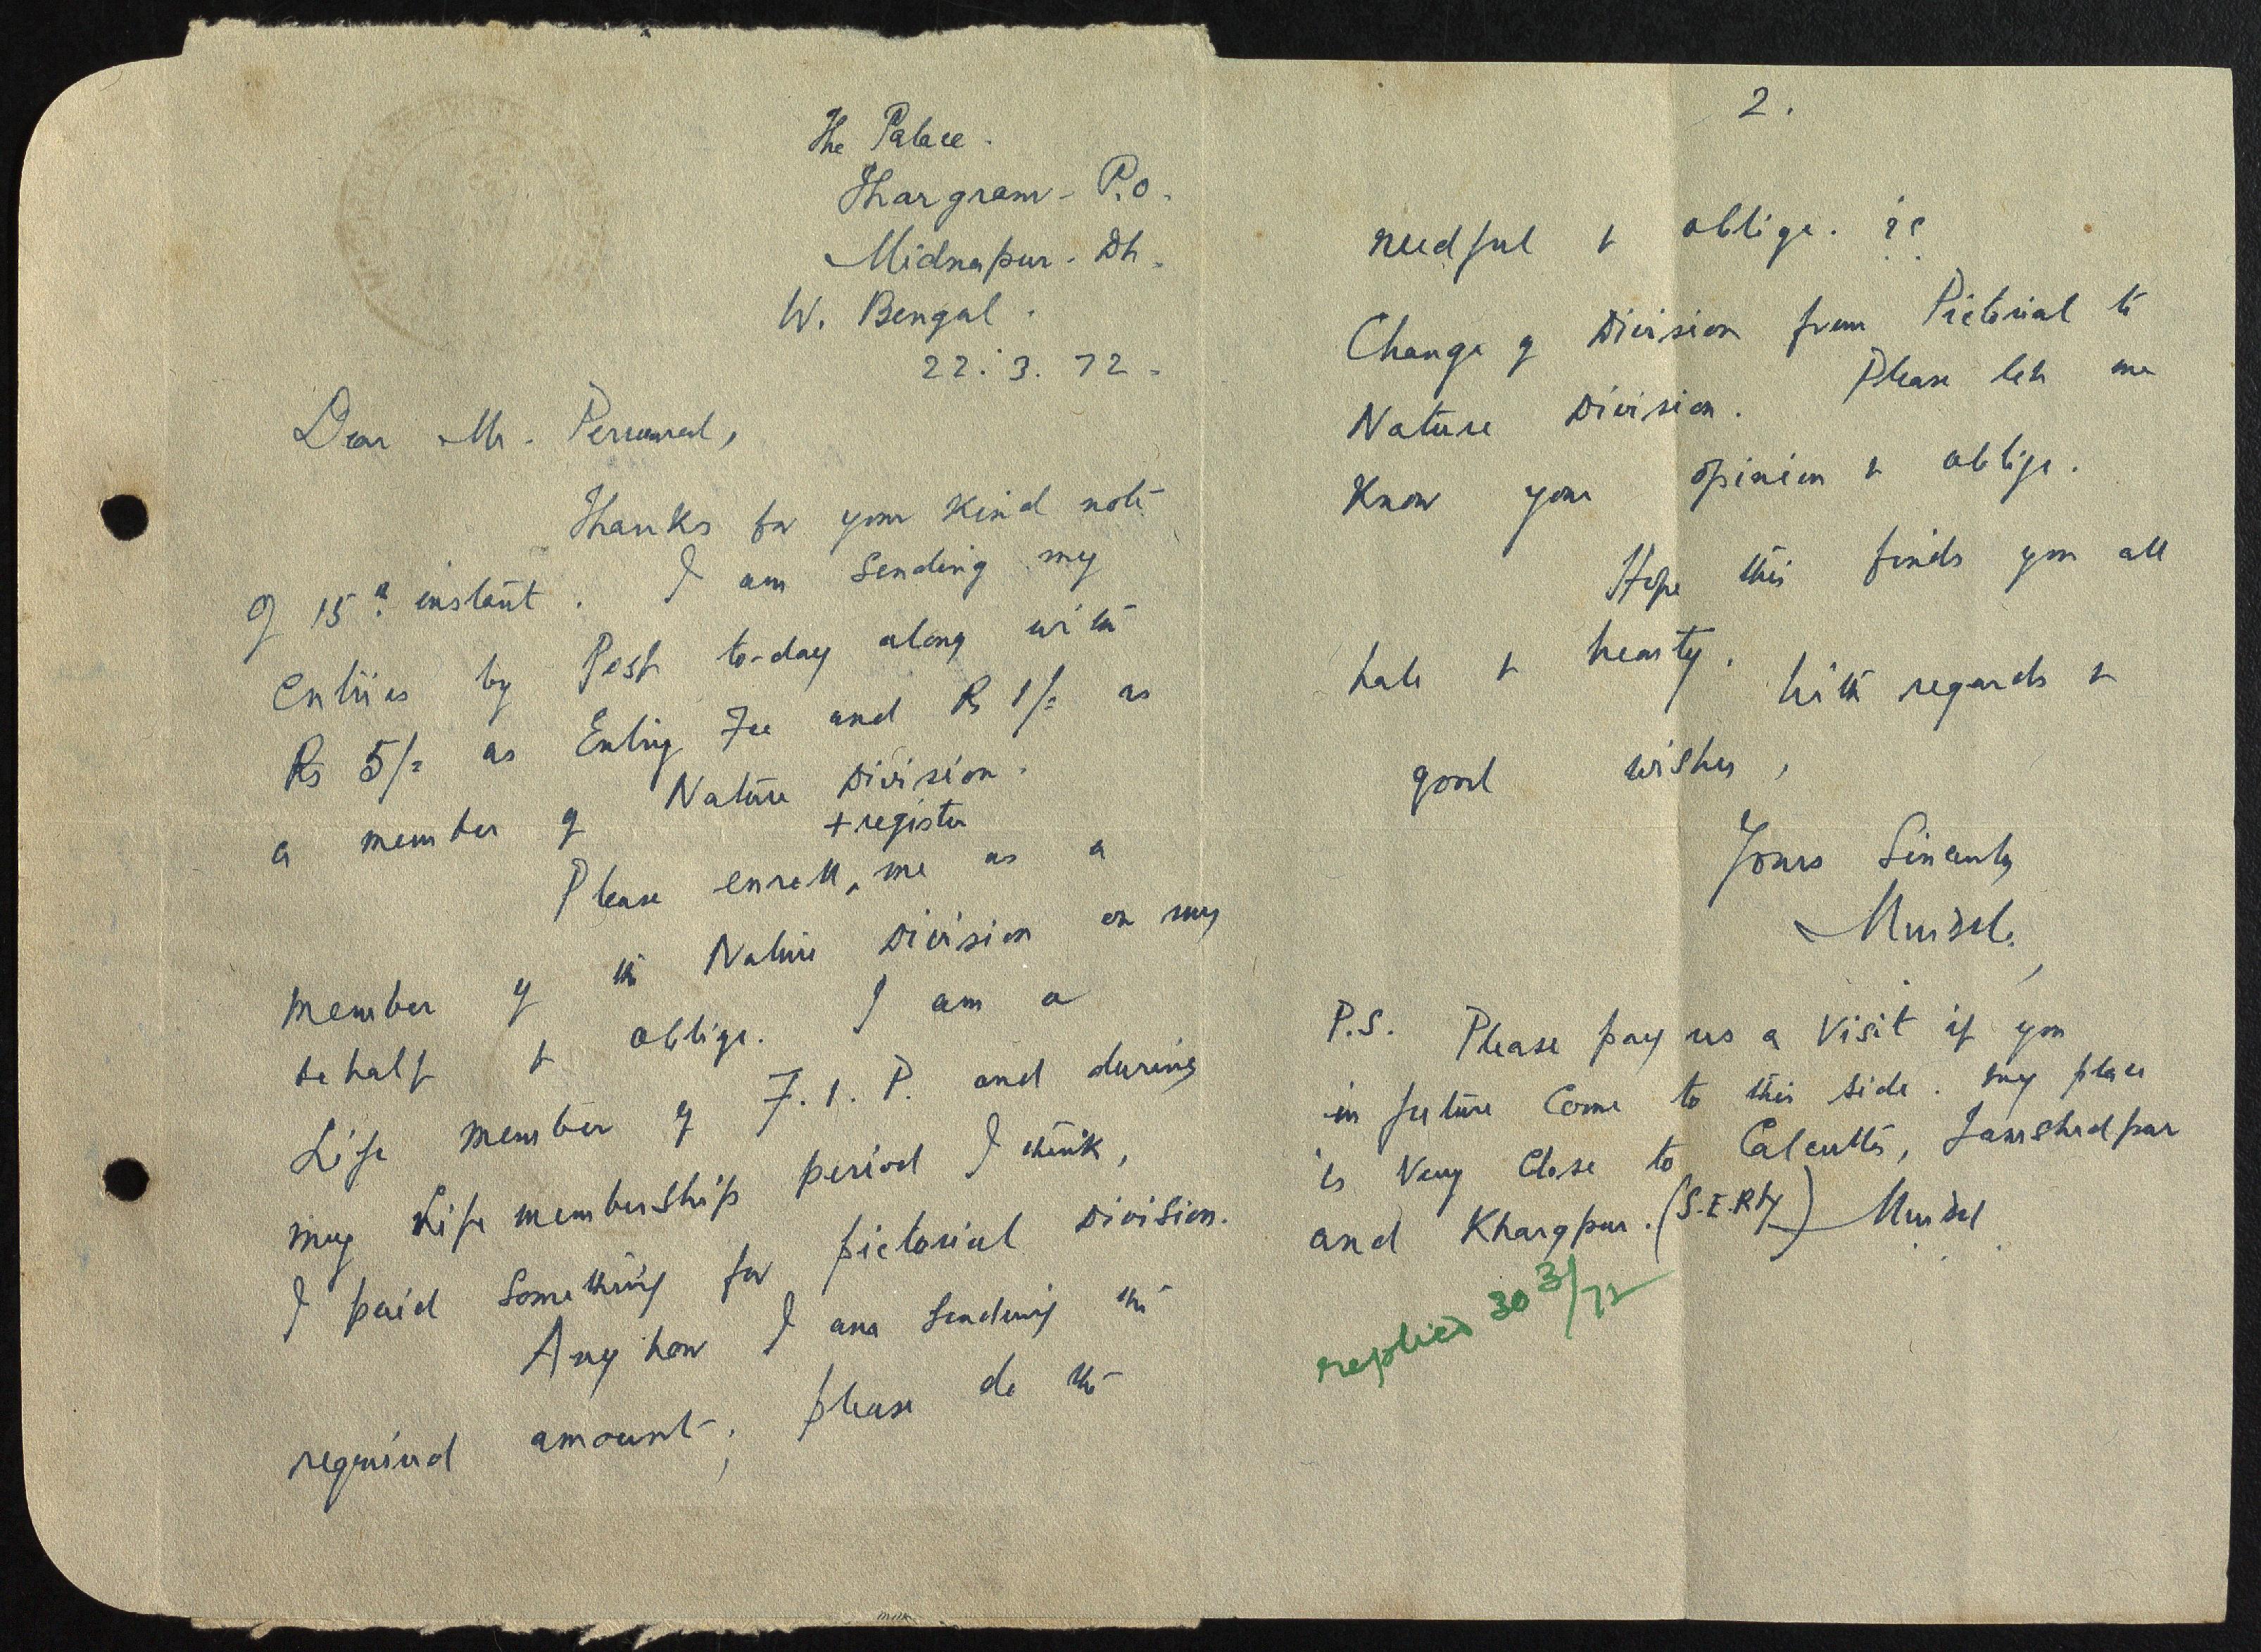 The Palace.
Jhargram - P.O.
Midnapur. Dt.
W. Bengal.
22.3.72.
Dear Mr. Perumal,
Thanks for your kind note
of 15th instant. I am sending my
entries by Post to-day along with
Rs 5/= as Entry Fee and Rs 1/= as
a member of Nature Division.
+ register
Please enroll, me as a
member of the Nature Division on my
behalf & oblige. I am a
Life member of F.I.P. and during
my Life membership period I think,
I paid something for pictorial Division.
Any how I am sending the
required amount, please do the
2.
needful & oblige. i.e.
Change of Division from Pictorial to
Nature Division. Please let me
Know your opinion & oblige.
Hope this finds you all
hale & hearty. With regards &
good wishes,
Yours Sincerely
P.S. Please pay us a visit if you
in future Come to this side. my place
is Very Close to Calcutta, Jamshedpur
and Khargpur. (S.E.Rly)
replied 30 3/72